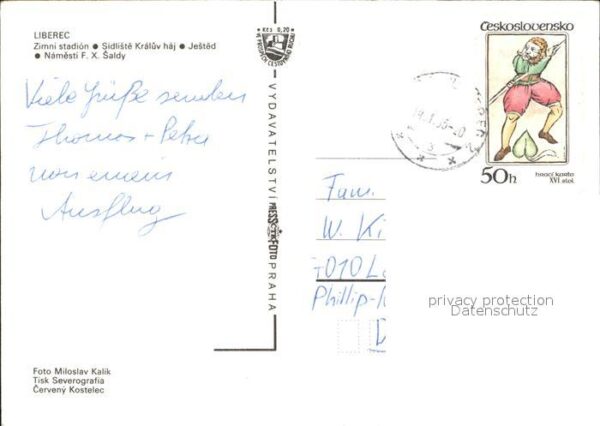 LIBEREC
Zimní stadión ● Sídliště Králův háj ● Ještěd
● Náměstí F. X. Šaldy
Viele Grüße senden
Thomas + Petra
von einem
Ausflug
Foto Miloslav Kalík
Tisk Severografia
Červený Kostelec
Kčs 0,20
VYDAVATELSTVÍ PRESSFOTO PRAHA
Československo
50h
hrací karta
XVI stol.
Fam.
W. Ki
7010 L
Phillip-
D
privacy protection
Datenschutz